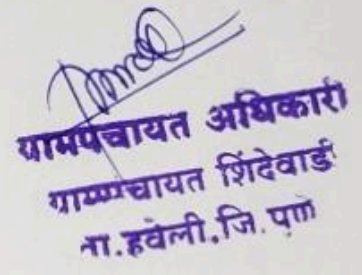 ग्रामपंचायत अधिकारी
ग्रामपंचायत शिंदेवाडी
ता.हवेली.जि.पुणे